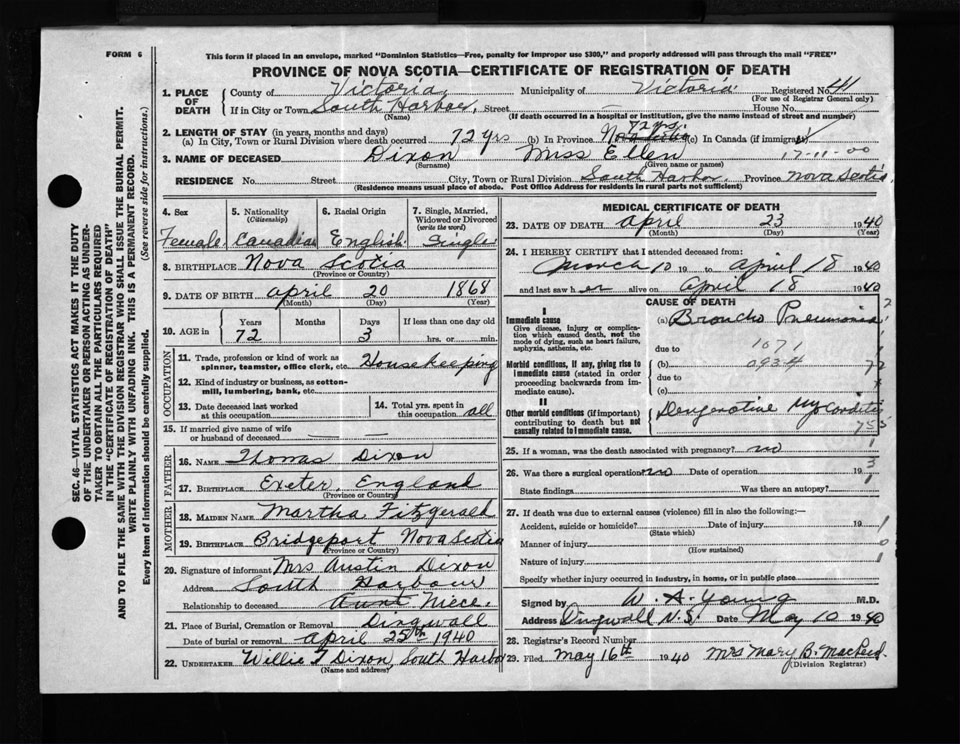 FORM 6
This form if placed in an envelope, marked "Dominion Statistics—Free, penalty for improper use $300," and properly addressed will pass through the mail "FREE"
PROVINCE OF NOVA SCOTIA—CERTIFICATE OF REGISTRATION OF DEATH
1. PLACE OF DEATH
County of Victoria, Municipality of Victoria Registered No. 41
(For use of Registrar General only)
If in City or Town South Harbor, Street — House No.
(Name) (If death occurred in a hospital or institution, give the name instead of street and number)
2. LENGTH OF STAY (in years, months and days)
72 yrs
(a) In City, Town or Rural Division where death occurred 72 yrs (b) In Province Nova Scotia (c) In Canada (if immigrant)
3. NAME OF DECEASED Dixon Miss Ellen 17-11-00
(Surname) (Given name or names)
RESIDENCE No. Street City, Town or Rural Division South Harbor. Province Nova Scotia
(Residence means usual place of abode. Post Office Address for residents in rural parts not sufficient)
4. Sex 5. Nationality (Citizenship) 6. Racial Origin 7. Single, Married, Widowed or Divorced (write the word)
Female Canadian English Single
8. BIRTHPLACE Nova Scotia
(Province or Country)
9. DATE OF BIRTH April 20 1868
(Month) (Day) (Year)
10. AGE in Years Months Days If less than one day old
72 3 hrs. or min.
OCCUPATION
11. Trade, profession or kind of work as spinner, teamster, office clerk, etc. Housekeeping
12. Kind of industry or business, as cotton-mill, lumbering, bank, etc.
13. Date deceased last worked at this occupation
14. Total yrs. spent in this occupation all
15. If married give name of wife or husband of deceased
FATHER
16. NAME Thomas Dixon
17. BIRTHPLACE Exeter, England
(Province or Country)
MOTHER
18. MAIDEN NAME Martha Fitzgerald
19. BIRTHPLACE Bridgeport Nova Scotia
(Province or Country)
20. Signature of informant Mrs Austin Dixon
Address South Harbour
Relationship to deceased Aunt Niece.
21. Place of Burial, Cremation or Removal Dingwall
Date of burial or removal April 25th 1940
22. UNDERTAKER Willie T Dixon, South Harbor
(Name and address)
MEDICAL CERTIFICATE OF DEATH
23. DATE OF DEATH April 23 1940
(Month) (Day) (Year)
24. I HEREBY CERTIFY that I attended deceased from:
March 10 19 to April 18 1940
and last saw her alive on April 18 1940
CAUSE OF DEATH
I
Immediate cause
Give disease, injury or complication which caused death, not the mode of dying, such as heart failure, asphyxia, asthenia, etc.
(a) Broncho Pneumonia
due to 1071
Morbid conditions, if any, giving rise to immediate cause (stated in order proceeding backwards from immediate cause).
(b) 0934
due to
(c)
II
Other morbid conditions (if important) contributing to death but not causally related to immediate cause.
Dengerative Myocarditis
25. If a woman, was the death associated with pregnancy? no
26. Was there a surgical operation? no Date of operation 193
State findings Was there an autopsy?
27. If death was due to external causes (violence) fill in also the following:—
Accident, suicide or homicide? Date of injury 19
(State which)
Manner of injury
(How sustained)
Nature of injury
Specify whether injury occurred in industry, in home, or in public place
Signed by W. A. Young M.D.
Address Dingwall N.S. Date May 10 1940
28. Registrar's Record Number
29. Filed May 16th 1940 Mrs Mary B. MacLeod.
(Division Registrar)
SEC. 46—VITAL STATISTICS ACT MAKES IT THE DUTY
OF THE UNDERTAKER OR PERSON ACTING AS UNDERTAKER TO OBTAIN ALL THE PARTICULARS REQUIRED
IN THE "CERTIFICATE OF REGISTRATION OF DEATH"
AND TO FILE THE SAME WITH THE DIVISION REGISTRAR WHO SHALL ISSUE THE BURIAL PERMIT.
WRITE PLAINLY WITH UNFADING INK. THIS IS A PERMANENT RECORD.
Every item of information should be carefully supplied. (See reverse side for instructions.)